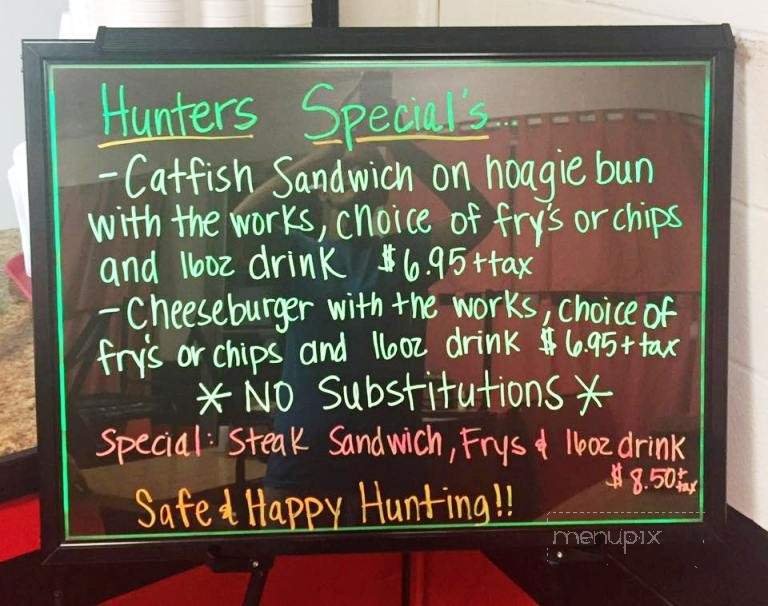 Hunters Special's...
-Catfish Sandwich on hoagie bun
with the works, choice of fry's or chips
and 16oz drink $6.95+tax
-Cheeseburger with the works, choice of
fry's or chips and 16oz drink $6.95+tax
* NO Substitutions *
Special: Steak Sandwich, Frys & 16oz drink
$8.50+tax
Safe & Happy Hunting!!
menupix